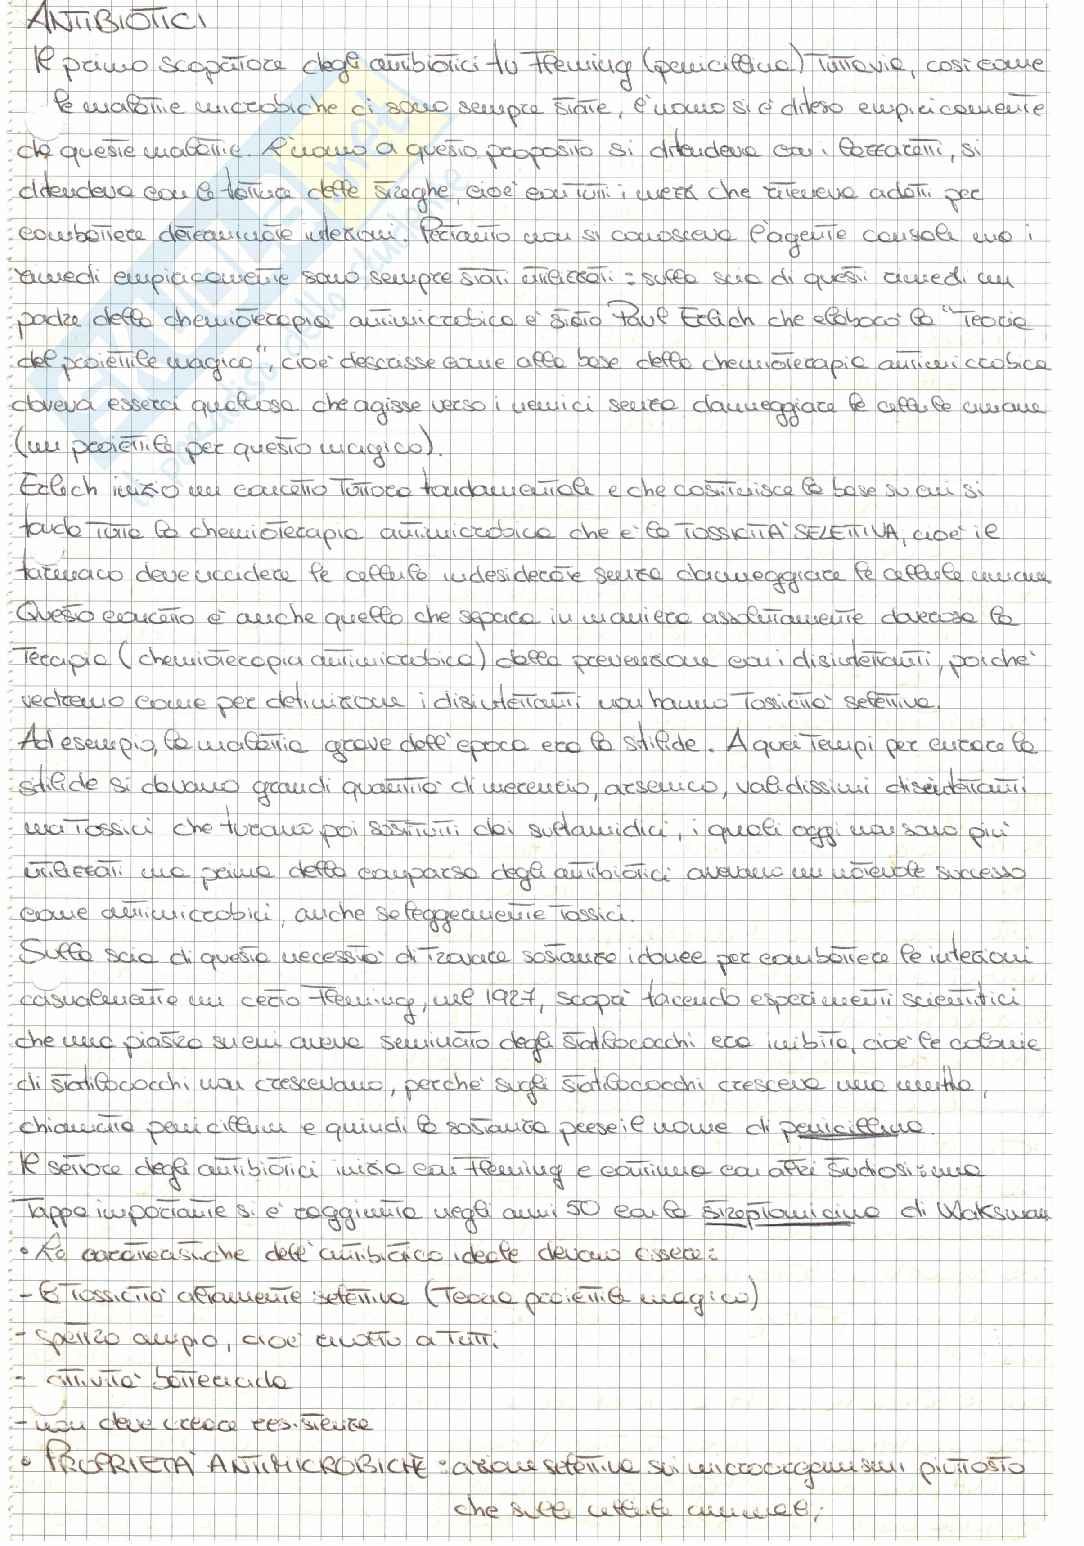 ANTIBIOTICI
Il primo scopritore degli antibiotici fu Fleming (penicillina) Tuttavia, così come
le malattie microbiche ci sono sempre state, l'uomo si è difeso empiricamente
da queste malattie. L'uomo a questo proposito si difendeva con i lazzaretti, si
difendeva con la tortura delle streghe, cioè con tutti i mezzi che riteneva adatti per
combattere determinate infezioni. Pertanto non si conosceva l'agente causale ma i
rimedi empiricamente sono sempre stati utilizzati: sulla scia di questi rimedi un
padre della chemioterapia antimicrobica è stato Paul Erlich che elaborò la "Teoria
del proiettile magico", cioè descrisse come alla base della chemioterapia antimicrobica
doveva esserci qualcosa che agisse verso i nemici senza danneggiare le cellule umane
(un proiettile per questo magico).
Erlich iniziò un concetto tuttora fondamentale e che costituisce la base su cui si
fonda tutta la chemioterapia antimicrobica che è la TOSSICITÀ SELETTIVA, cioè il
farmaco deve uccidere le cellule indesiderate senza danneggiare le cellule umane
Questo concetto è anche quello che separa in maniera assolutamente doverosa la
Terapia (chemioterapia antimicrobica) dalla prevenzione con i disinfettanti, poiché
vedremo come per definizione i disinfettanti non hanno tossicità selettiva.
Ad esempio, la malattia grave dell'epoca era la sifilide. A quei tempi per curare la
sifilide si davano grandi quantità di mercurio, arsenico, validissimi disinfettanti
ma tossici che furono poi sostituiti dai sulfamidici, i quali oggi non sono più
utilizzati ma prima della comparsa degli antibiotici avevano un notevole successo
come antimicrobici, anche se leggermente tossici.
Sulla scia di questa necessità di trovare sostanze idonee per combattere le infezioni
casualmente un certo Fleming, nel 1927, scoprì facendo esperimenti scientifici
che una piastra su cui aveva seminato degli stafilococchi era inibita, cioè le colonie
di stafilococchi non crescevano, perché sugli stafilococchi cresceva una muffa,
chiamata penicillium e quindi la sostanza prese il nome di penicillina.
Il settore degli antibiotici inizia con Fleming e continua con altri studiosi: una
tappa importante si è raggiunta negli anni 50 con la streptomicina di Waksman
• Le caratteristiche dell'antibiotico ideale devono essere:
- la tossicità altamente selettiva (Teoria proiettile magico)
- spettro ampio, cioè adatto a tutti
- attività battericida
- non deve creare resistenza
• PROPRIETÀ ANTIMICROBICHE: azione selettiva sui microorganismi piuttosto
che sulle cellule animali;